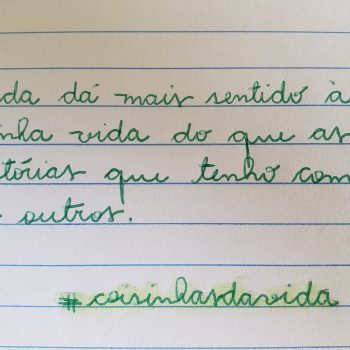 da dá mais sentido à
nha vida do que as
tórias que tenho com
outros.
#coisinhasdavida